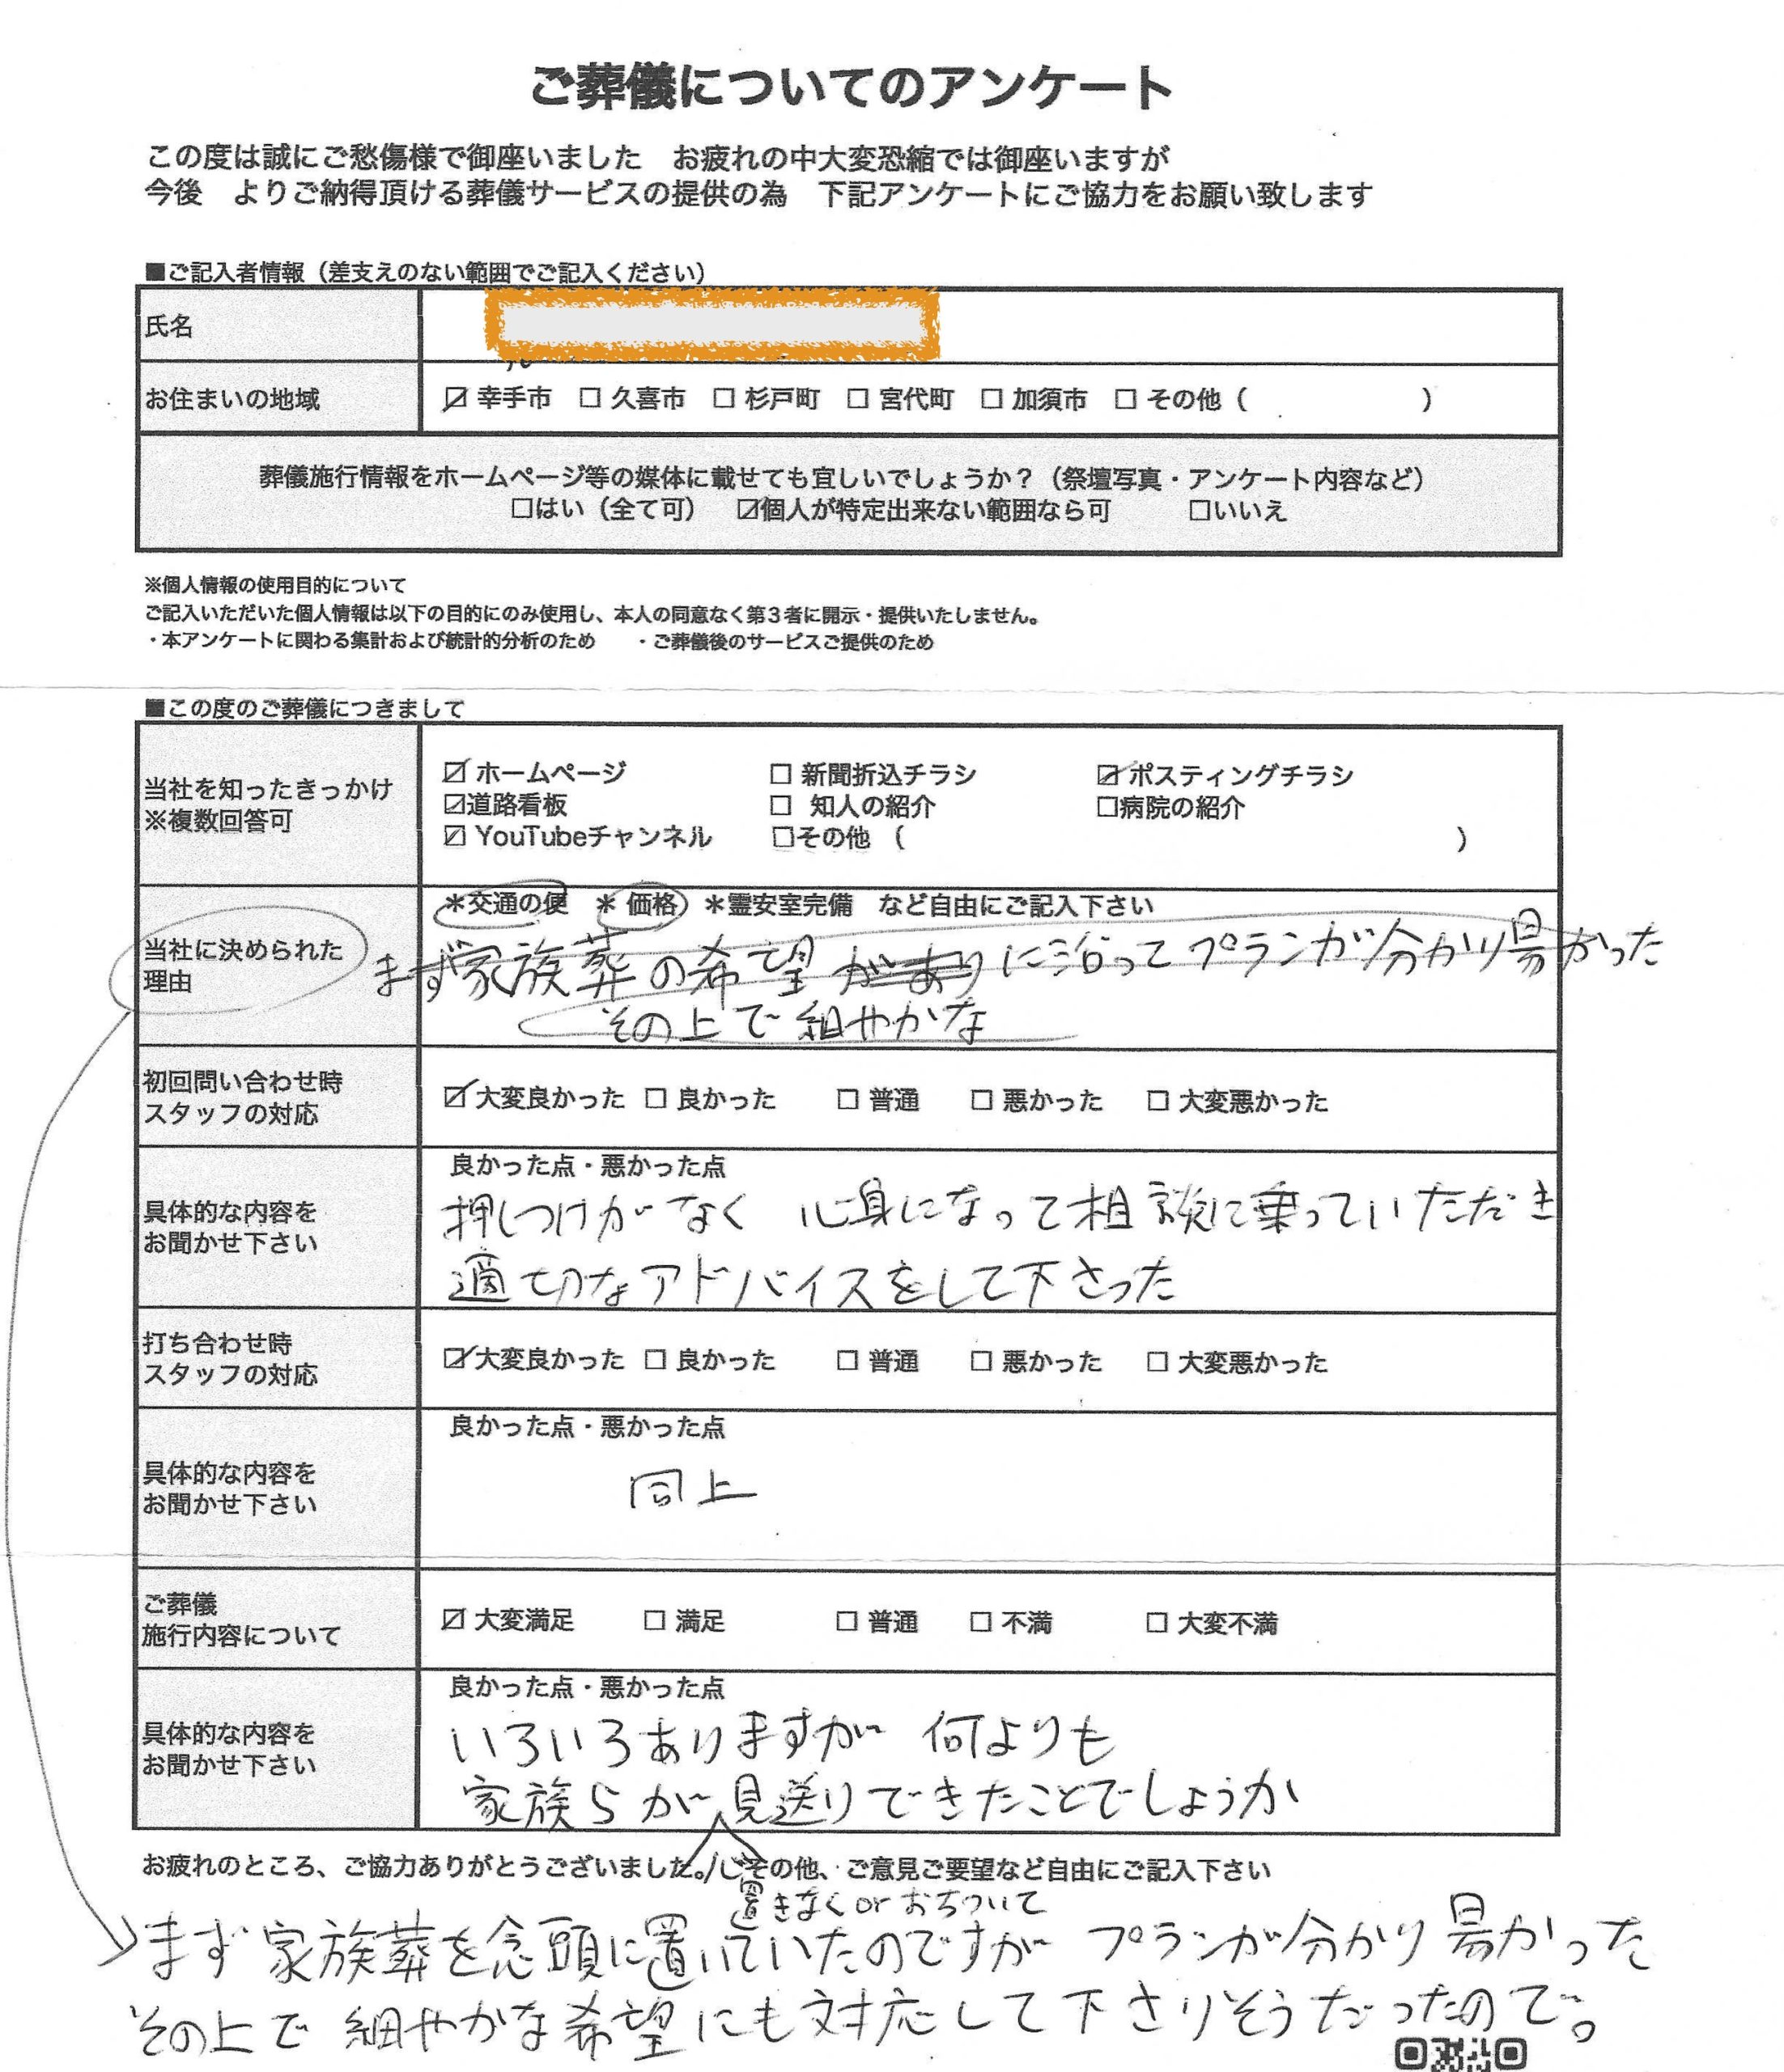 ご葬儀についてのアンケート
この度は誠にご愁傷様で御座いました　お疲れの中大変恐縮では御座いますが
今後　よりご納得頂ける葬儀サービスの提供の為　下記アンケートにご協力をお願い致します
■ご記入者情報（差支えのない範囲でご記入ください）
氏名
お住まいの地域 ☑ 幸手市 ☐ 久喜市 ☐ 杉戸町 ☐ 宮代町 ☐ 加須市 ☐ その他（　　　　　）
葬儀施行情報をホームページ等の媒体に載せても宜しいでしょうか？（祭壇写真・アンケート内容など）
☐はい（全て可） ☑個人が特定出来ない範囲なら可 ☐いいえ
※個人情報の使用目的について
ご記入いただいた個人情報は以下の目的にのみ使用し、本人の同意なく第３者に開示・提供いたしません。
・本アンケートに関わる集計および統計的分析のため　・ご葬儀後のサービスご提供のため
■この度のご葬儀につきまして
当社を知ったきっかけ
※複数回答可
☑ ホームページ ☐ 新聞折込チラシ ☑ ポスティングチラシ
☑道路看板 ☐ 知人の紹介 ☐病院の紹介
☑ YouTubeチャンネル ☐その他（　　　　　）
当社に決められた
理由
＊交通の便　＊価格　＊霊安室完備　など自由にご記入下さい
まず家族葬の希望があり に沿ってプランが分かり易かった
その上で細やかな
初回問い合わせ時
スタッフの対応
☑大変良かった ☐ 良かった ☐ 普通 ☐ 悪かった ☐ 大変悪かった
具体的な内容を
お聞かせ下さい
良かった点・悪かった点
押しつけがなく　心身になって相談に乗っていただき
適切なアドバイスをして下さった
打ち合わせ時
スタッフの対応
☑大変良かった ☐ 良かった ☐ 普通 ☐ 悪かった ☐ 大変悪かった
具体的な内容を
お聞かせ下さい
良かった点・悪かった点
同上
ご葬儀
施行内容について
☑ 大変満足 ☐ 満足 ☐ 普通 ☐ 不満 ☐ 大変不満
具体的な内容を
お聞かせ下さい
良かった点・悪かった点
いろいろありますが　何よりも
家族らが見送りできたことでしょうか
お疲れのところ、ご協力ありがとうございました。その他、ご意見ご要望など自由にご記入下さい
置きなく or おちついて
まず家族葬を念頭に置いていたのですが　プランが分かり易かった
その上で 細やかな希望にも対応して下さりそうだったので。